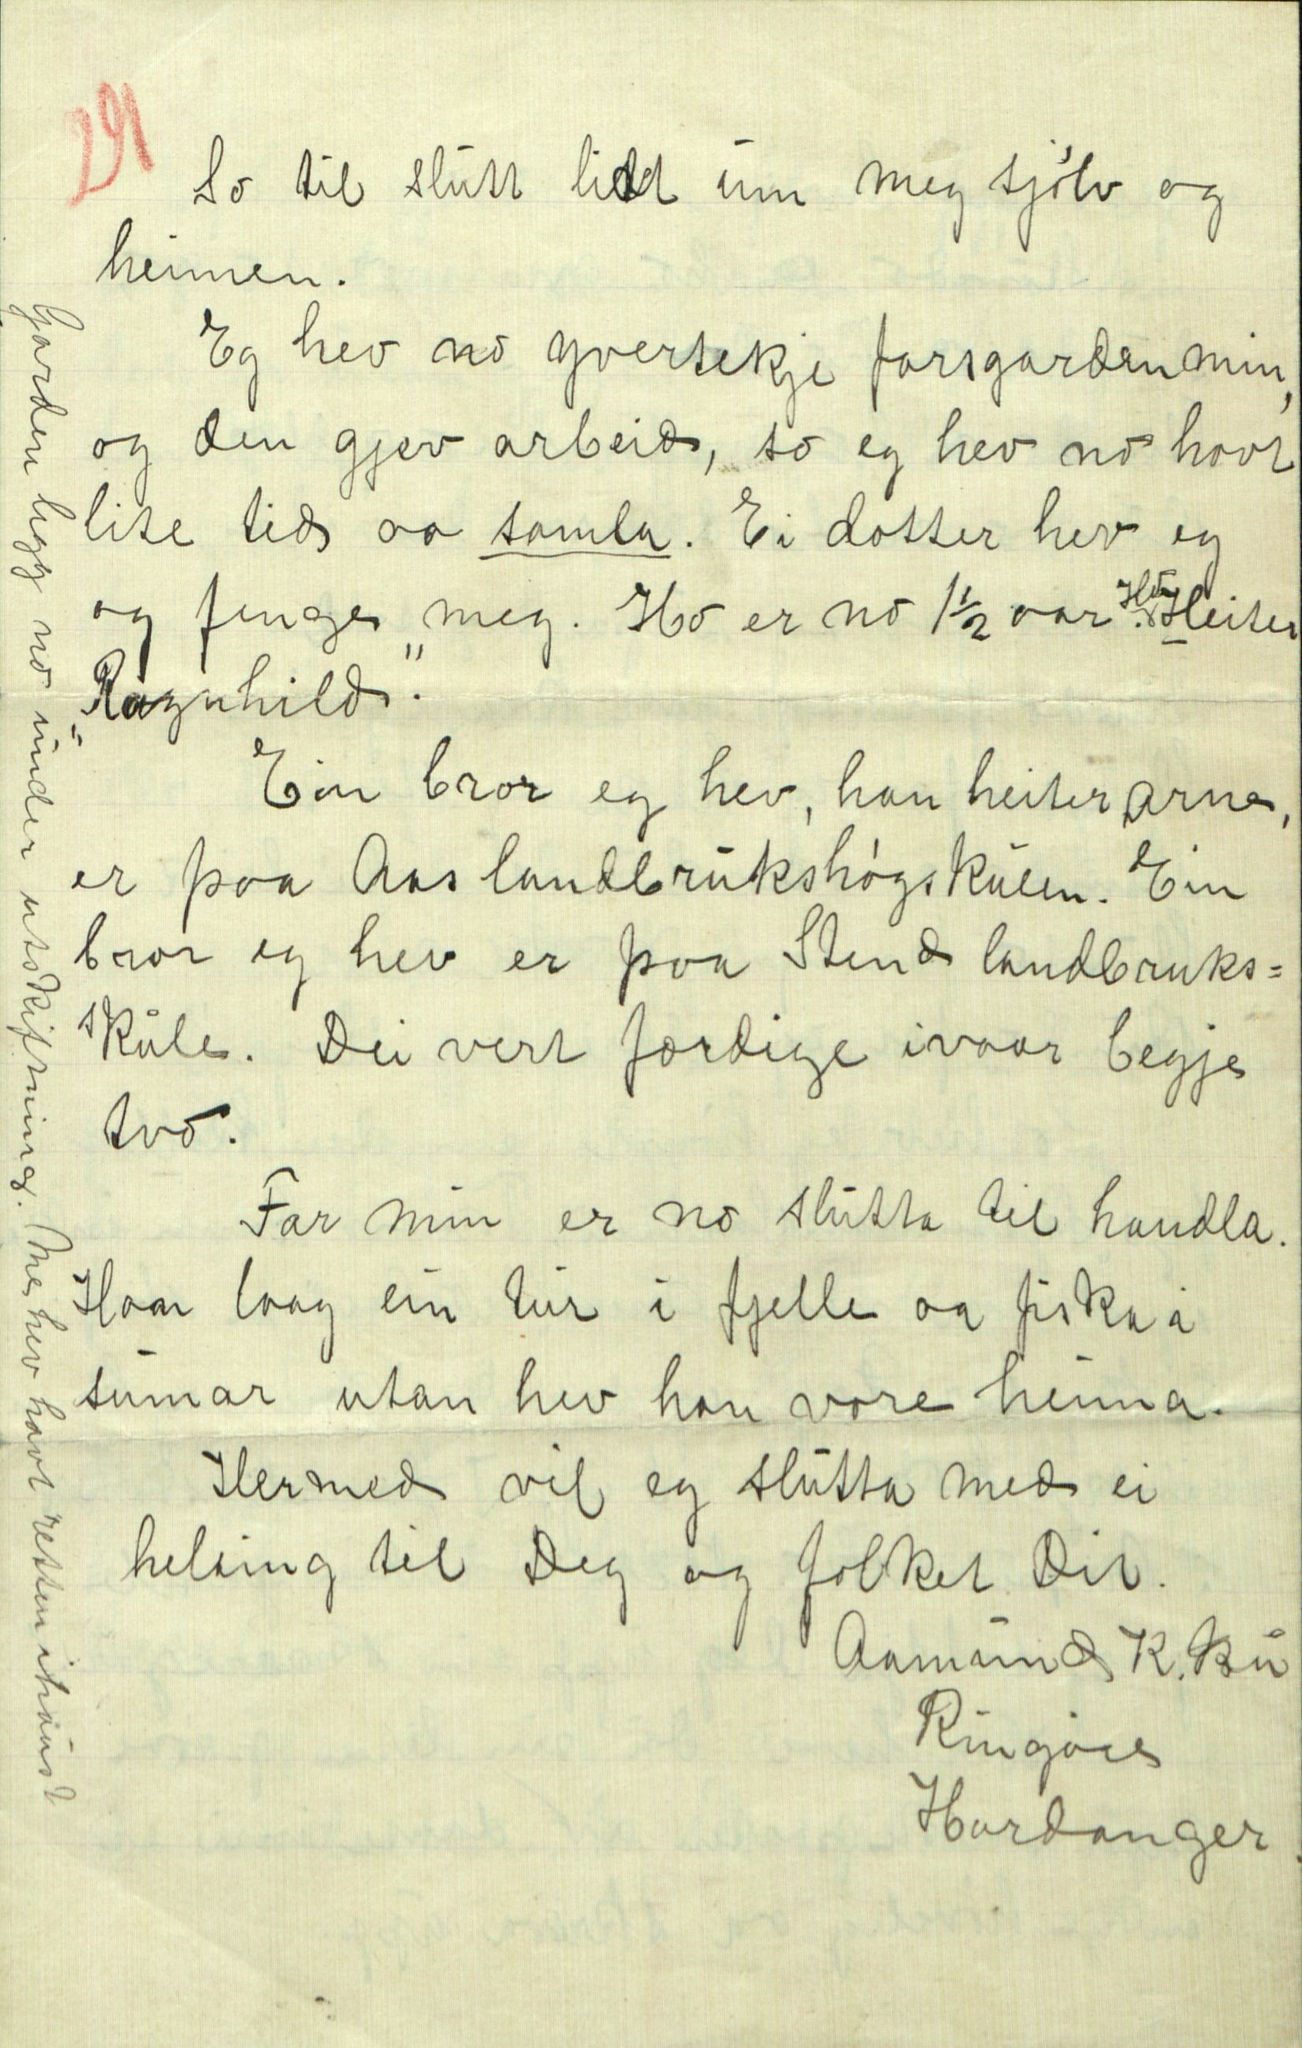 291
So til slutt litt um meg sjølv og
heimen.
Eg hev no yvertekje farsgarden min,
og den gjev arbeid, so eg hev no havt
lite tid aa samla. Ei dotter hev eg
og fenge meg. Ho er no 1½ aar. Ho Heiter
"Ragnhild".
Ein bror eg hev, han heiter Arne,
er paa Aas landbrukshøgskulen. Ein
bror eg hev er paa Stend landbruks=
skule. Dei vert færdige ivaar begje
two.
Far min er no slutta til handla.
Han laag ein tur i fjelle aa fiska i
sumar utan hev han vore heima.
Hermed vil eg slutta med ei
helsing til Deg og folket Dit.
Aamund K. Bu
Ringøes
Hardanger.
Garden ligg no under utskiftning. Me hev havt retten ihaust